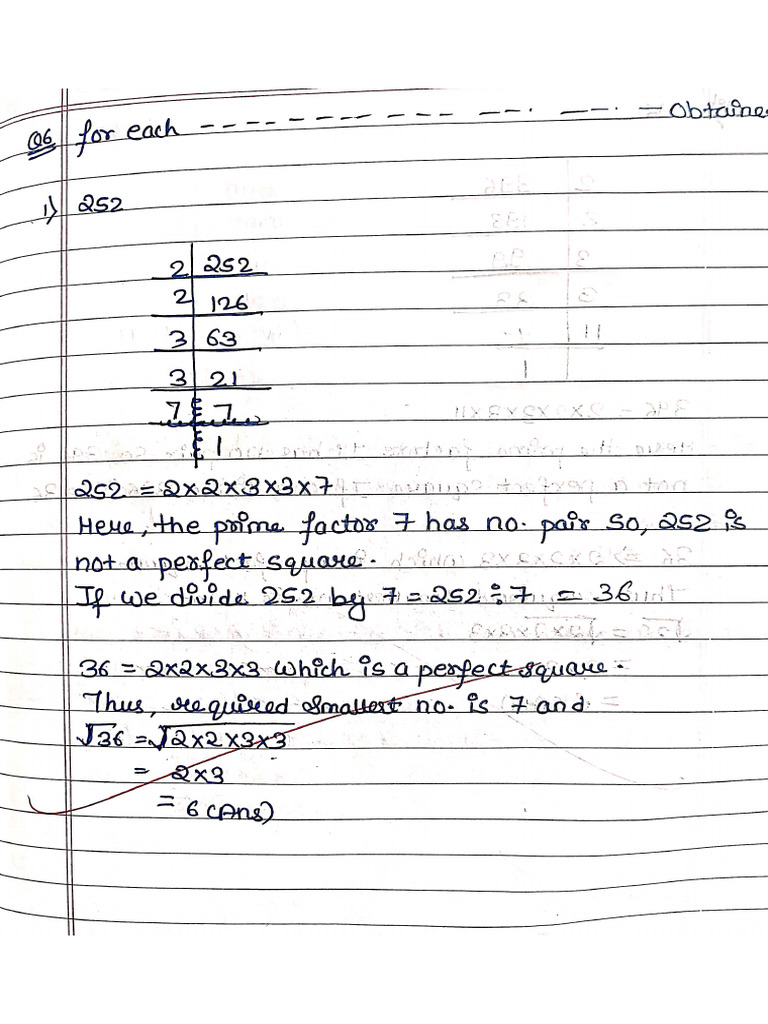 Q6 for each ---------- --. --. - Obtaine
1) 252
2 252
2 126
3 63
3 21
7 7
1
252 = 2×2×3×3×7
Here, the prime factor 7 has no. pair so, 252 is
not a perfect square.
If we divide 252 by 7 = 252 ÷ 7 = 36
36 = 2×2×3×3 which is a perfect square.
Thus, required smallest no. is 7 and
√36 = √2×2×3×3
= 2×3
= 6 (Ans)